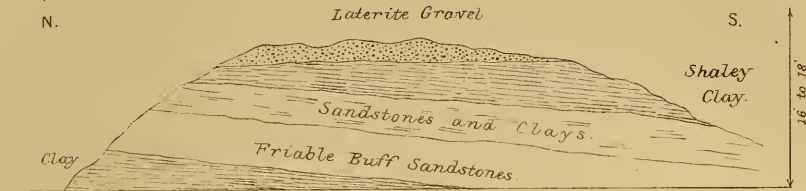 Laterite Gravel
N.
S.
Shaley
Clay.
16' to 18'
Sandstones and Clays.
Clay
Friable Buff Sandstones.